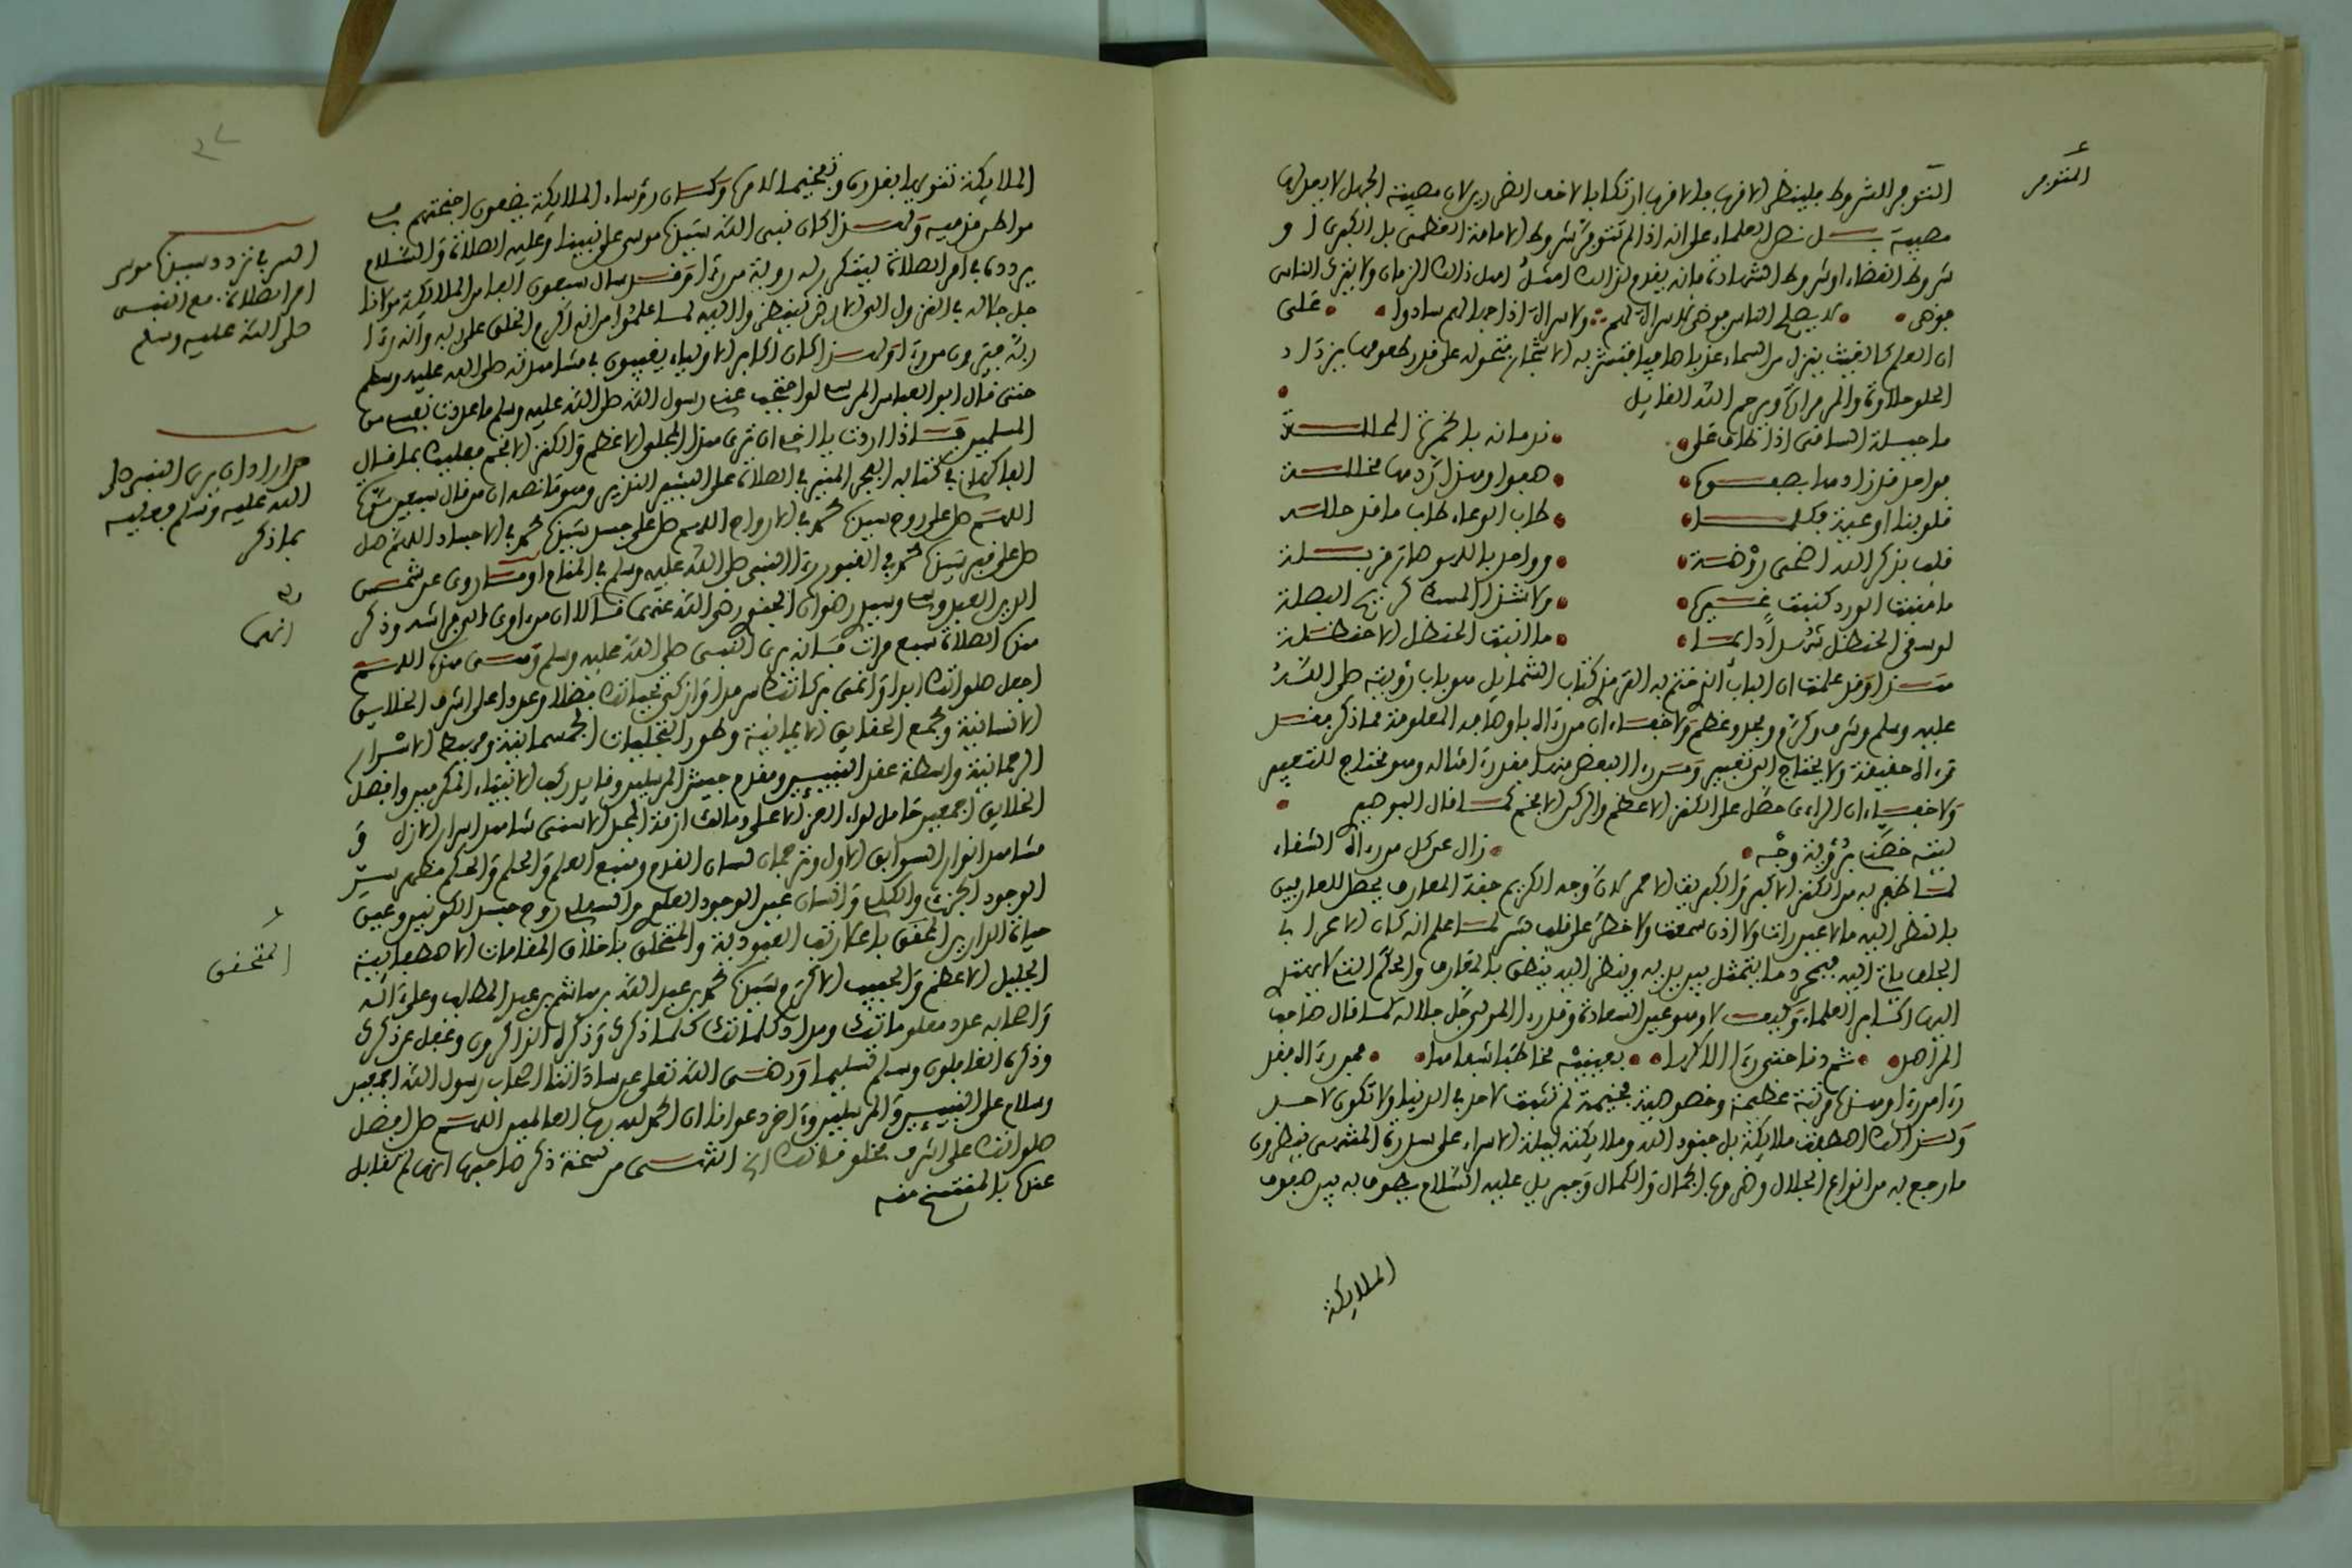 المتوفر
المتوفر الشروط فلينظر الاقرب فالاقرب ارتكابا لاخف الضررين لان مصيبة الجهل لا يعدلها
مصيبة بل نص العلماء على انه اذا لم تتوفر شروط الامامة العظمى بل الكبرى او
شروط القضاء او شروط الشهادة فانه يقدم لذالك امثل اهل ذالك الزمان ولا يترك الناس
فوضى لا يصلح الناس فوضى لا سراة لهم ولا سراة اذا جهالهم سادوا على
ان العلم كالغيث ينزل من السماء عذبا صافيا فتشربه الاشجار فتحوله على قدر طعومها فيزداد
الحلو حلاوة والمر مرارة ويرحم الله القايل
ما حيلة الساقي اذا طاف على ندمانه بالخمرة
قلوبنا اوعية طاب الوعاء طاب ما قد حل له
قلب بذكر الله اضحى روضة
ما منبت الورد كنبت غيرها ولا شذا المسك كريح البصلة
لو سقي الحنظل شهدا دايما ما انبت الحنظل الا حنظلة
هذا وقد علمت ان الباب الذي ختم به الترمذي كتاب الشمايل هو باب رؤيته صلى الله
عليه وسلم وشرف وكرم ومجد وعظم ولا خفاء ان من رءاه باوصافه المعلومة مما ذكر فقد
رءاه حقيقة ولا يحتاج الى تعبير ومن رءاه البعض منها فقد رءا مثاله وهو محتاج للتعبير
ولا خفاء ان الراءى حصل على الكنز الاعظم والركن الافخم كما قال البوصيري
ليته خصني برؤية وجه زال عن كل من رءاه الشقاء
لما ظفر به من الكنز الاكبر والكبريت الاحمر لان وجهه الكريم جنة المعارف يحصل للعارفين
بالنظر اليه ما لا عين رات ولا اذن سمعت ولا خطر على قلب بشر لما علم انه كان الاعرابي
الجلف ياتي اليه فبمجرد ما يتمثل بين يديه وينظر اليه ينطق بالمعارف والحكم التي لا يهتدي
اليها اكابر العلماء وكيف لا وهو عين السعادة وقد رءا المولى جل جلاله كما قال صاحب
المراصد ثم دنا حتى رءا الالاها بعينيه مخاطبا شفاها فمن رءاه فقد
رءا من رءا وهذا مرتبة عظيمة وخصوصية فخيمة لم تثبت لاحد في الدنيا ولا تكون لاحد
ولذالك اصطفت ملايكة بل جنود الله وملايكته ليلة الاسراء على سدرة المنتهى ينظرون
ما رجع به من انواع الجلال وضروب الجمال والكمال وجبريل عليه السلام يطوف به بين صفوف
الملايكة
الملايكة تنويها بقدره وتفخيما لامره وكان رؤساء الملايكة يضعون اجنحتهم في
مواطئ قدميه ولهذا كان نبي الله سيدنا موسى على نبينا وعليه الصلاة والسلام
يردده في امر الصلاة ليتكرر له رؤية من رءا
جل جلاله في النزول الى الارض لينظروا اليه لما علموا من انه اكرم الخلق على ربه وانه رءا
ربه فيرون من رءا ولهذا كان اكابر الاولياء يغيبون في مشاهدته صلى الله عليه وسلم
حتى قال ابو العباس المرسي لو احتجب عني رسول الله صلى الله عليه وسلم ما عددت نفسي من
المسلمين فاذا اردت يا اخي ان ترى هذا المجلى الاعظم والكنز الافخم فعليك بما قال
الفاكهاني في كتابه الفجر المنير في الصلاة على البشير النذير وهو ما نصه ان من قال سبعين مرة
اللهم صل على روح سيدنا محمد في الارواح اللهم صل على جسد سيدنا محمد في الاجساد اللهم صل
صل على قبر سيدنا محمد في القبور رءا النبي صلى الله عليه وسلم في المنام او ما روي عن شمس
الدين العبدوسي وسيد رضوان الجنوي رضي الله عنهما قالا ان من اوى الى فراشه وذكر
هذه الصلاة سبع مرات فانه يرى النبي صلى الله عليه وسلم وهي هذه اللهم
اجعل صلواتك ابدا وانمى بركاتك سرمدا وازكى تحياتك فضلا وعددا على اشرف الخلايق
الانسانية ومجمع الحقايق الايمانية وطور التجليات الجسمانية ومهبط الاسرار
الرحمانية واسطة عقد النبيين ومقدم جيش المرسلين وقايد ركب الانبياء المكرمين وافضل
الخلايق اجمعين حامل لواء العز الاعلى ومالك ازمة المجد الاسنى شاهد اسرار الازل و
مشاهد انوار السوابق الاول وترجمان لسان القدم ومنبع العلم والحلم والحكم مظهر سر
الوجود الجزءي والكلي وانسان عين الوجود العلوي والسفلي روح جسد الكونين وعين
حياة الدارين المتحقق باعلا رتب العبودية والمتخلق باخلاق المقامات الاصطفايية
الخليل الاعظم والحبيب الاكرم سيدنا محمد بن عبد الله بن هاشم بن عبد المطلب وعلى ءاله
واصحابه عدد معلوماتك ومداد كلماتك كلما ذكرك وذكره الذاكرون وغفل عن ذكرك
وذكره الغافلون وسلم تسليما ورضي الله تعلى عن ساداتنا اصحاب رسول الله اجمعين
وسلام على النبيين والمرسلين وءاخر دعوانا ان الحمد لله رب العالمين اللهم صل افضل
صلواتك على اشرف مخلوقاتك الخ انتهى من نسخة ذكر صاحبها انه لم يقابل
عنها بالمنتسخ منه
السر في تردد سيدنا موسى
امر الصلاة مع النبي
صلى الله عليه وسلم
من اراد ان يرى النبي صلى
الله عليه وسلم فعليه
بما ذكر
المتحقق